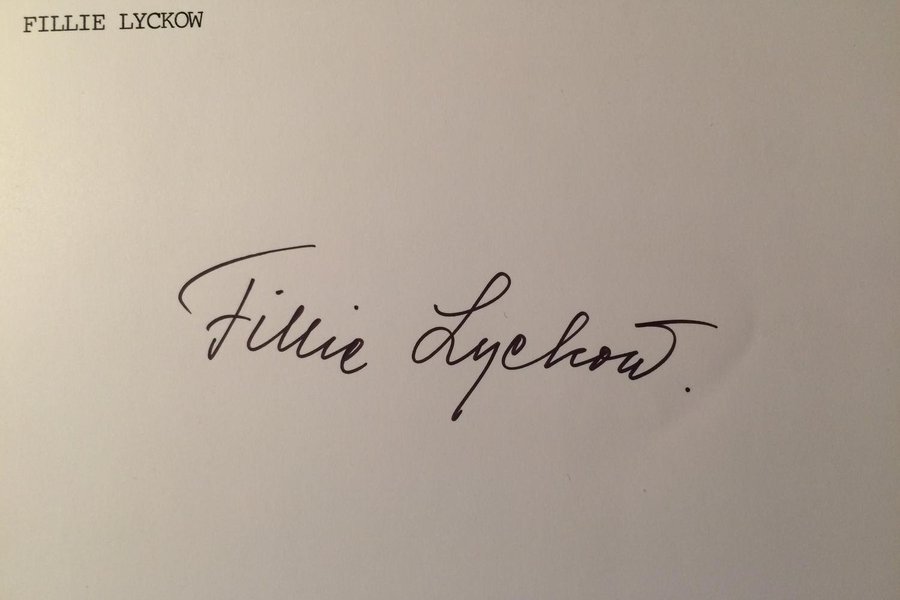 FILLIE LYCKOW
Fillie Lyckow.